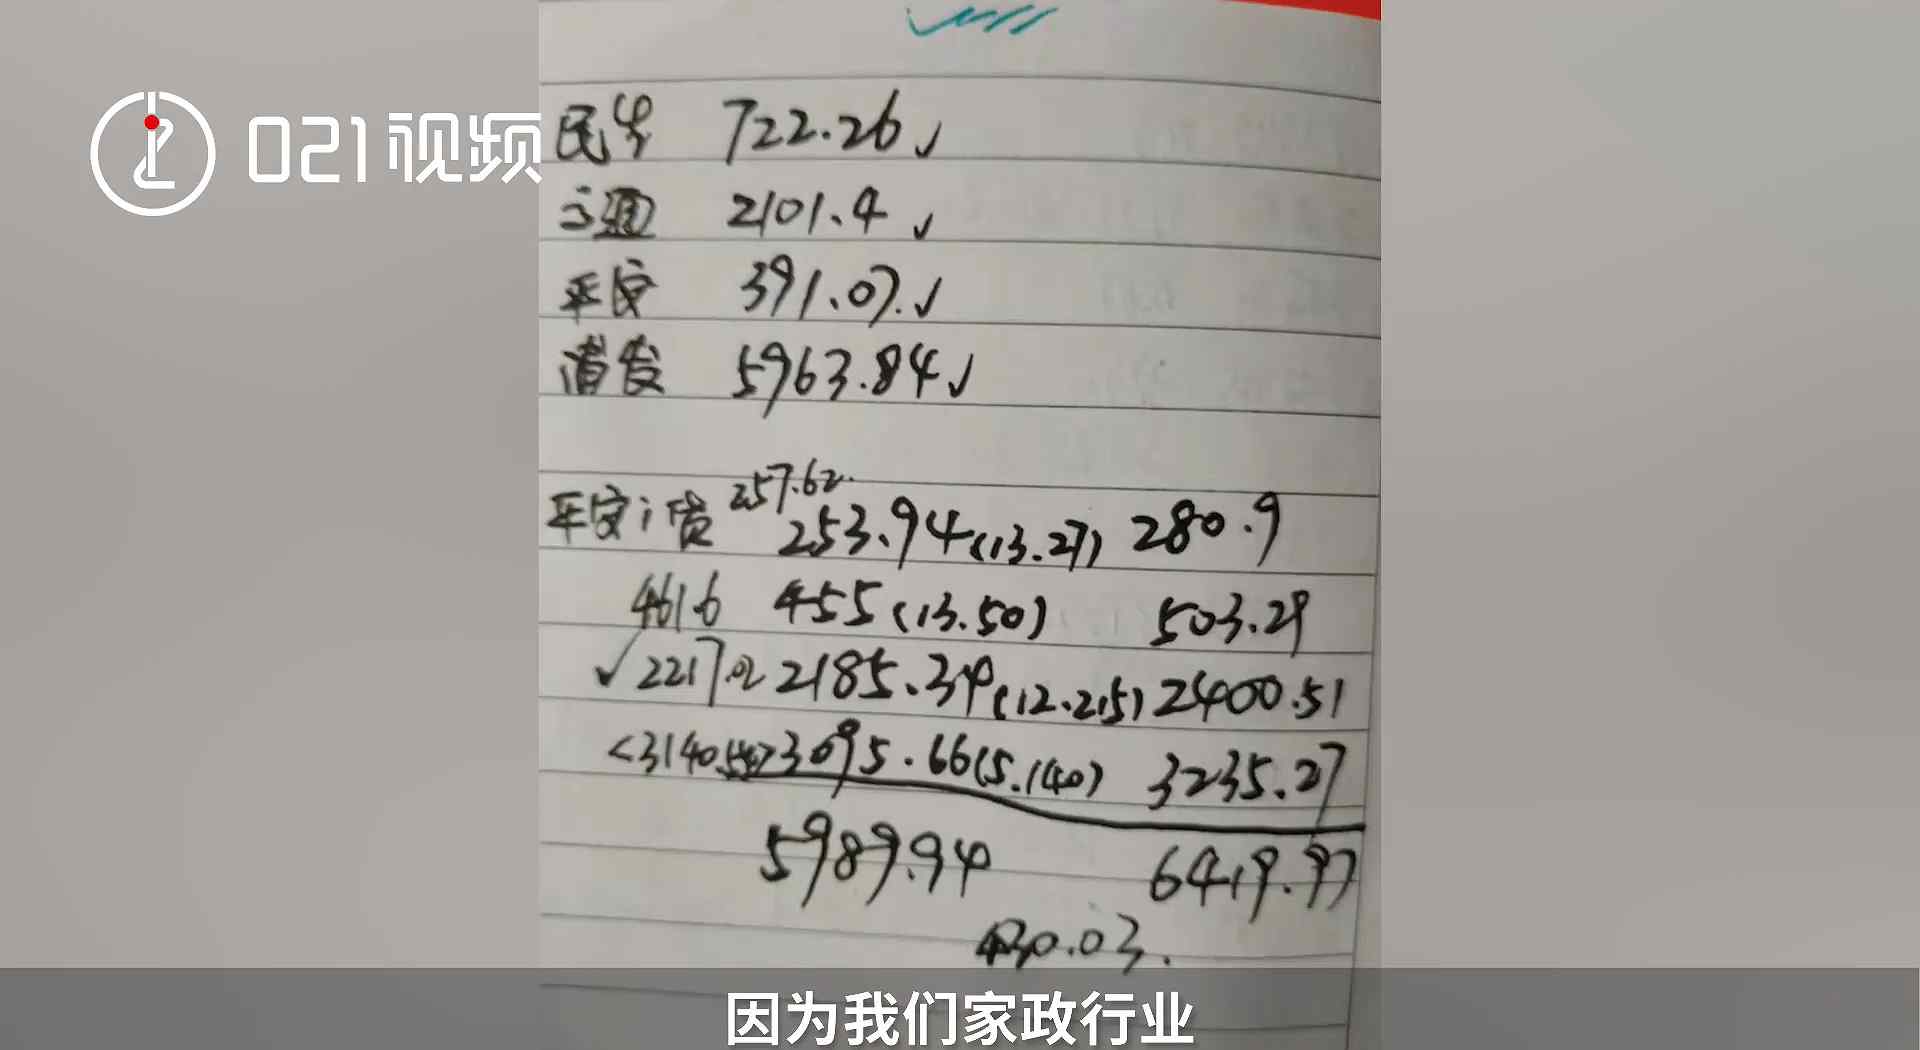 021视频
民生 722.26✓
交通 2101.4 ✓
平安 391.07.✓
浦发 5963.84✓
平安i贷 257.62. 253.94(13.27) 280.9
461.6 455(13.50) 503.29
✓2217.02 2185.34(12.215) 2400.51
<3140.56>3095.66(5.140) 3235.27
5989.94 6419.97
430.03.
因为我们家政行业